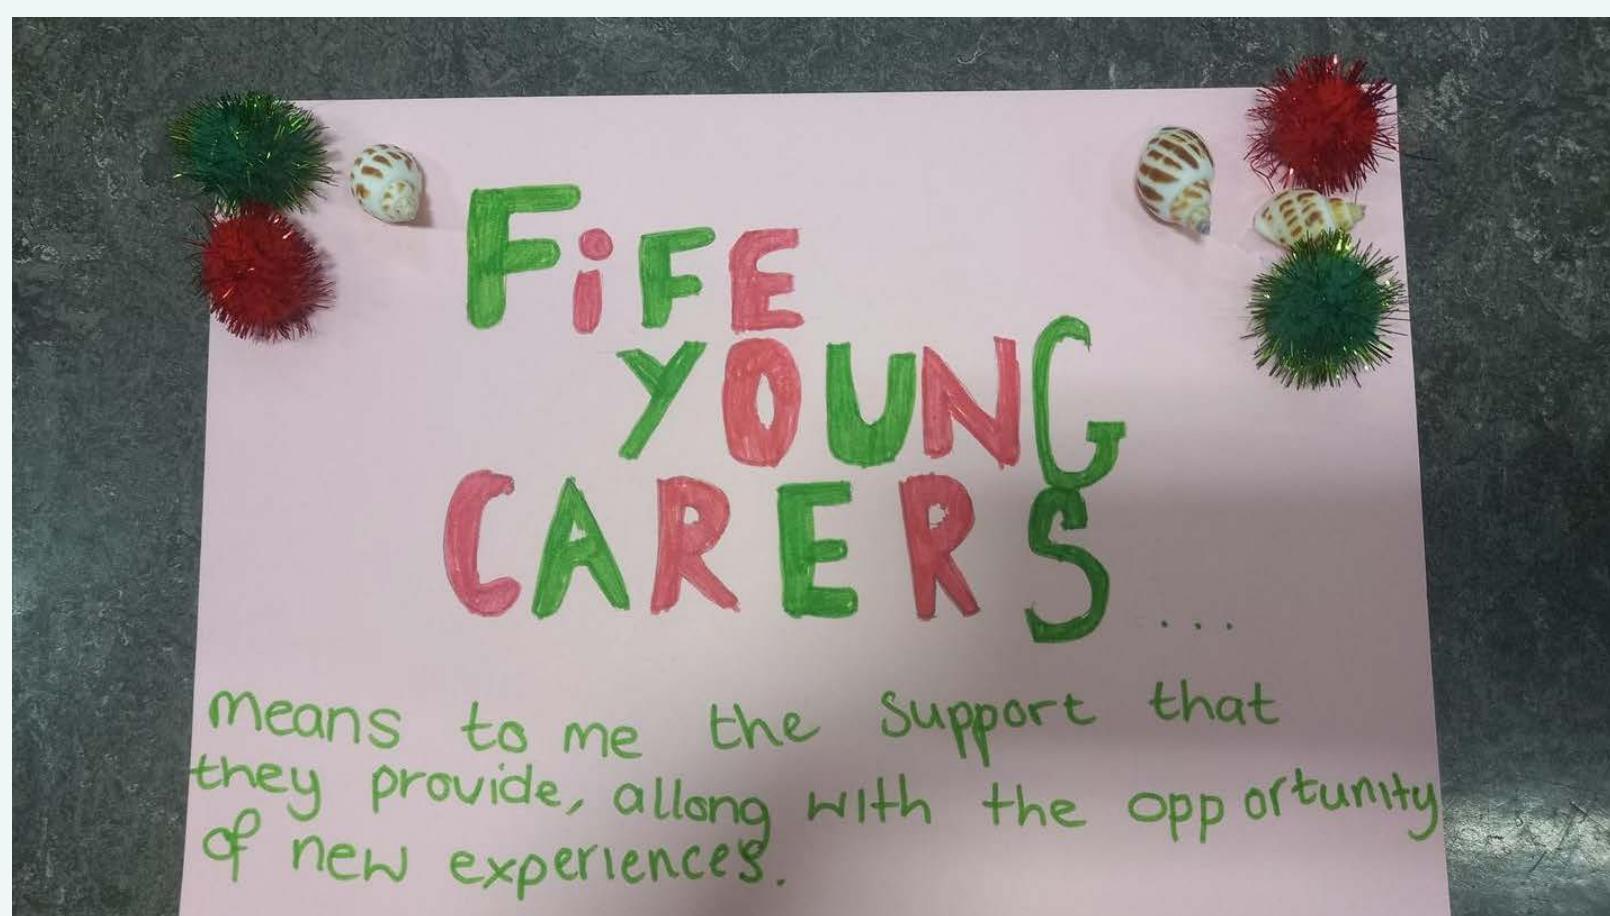 FiFE
YOUNG
CARERS...
means to me the support that
they provide, allong with the opportunity
of new experiences.